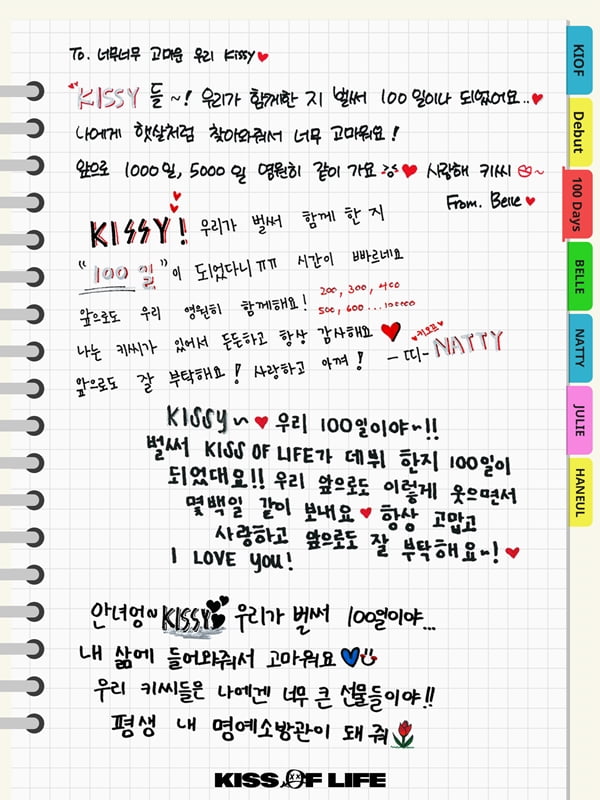 To. 너무너무 고마운 우리 Kissy♥
KISSY 들 ~! 우리가 함께한 지 벌써 100일이나 되었어요..♥
나에게 햇살처럼 찾아와줘서 너무 고마워요!
앞으로 1000일, 5000일 영원히 같이 가요 ♥ 사랑해 키씨 ~
From. Belle ♥
KISSY! 우리가 벌써 함께 한 지
“100일”이 되었다니ㅠㅠ 시간이 빠르네요
200, 300, 400
앞으로도 우리 영원히 함께해요!
500, 600...100000
나는 키씨가 있어서 든든하고 항상 감사해요 ♥
♥키오프♥
앞으로도 잘 부탁해요! 사랑하고 아껴! -띠- NATTY
KISSY~ ♥ 우리 100일이야~!!
벌써 KISS OF LIFE가 데뷔 한지 100일이
되었대요!! 우리 앞으로도 이렇게 웃으면서
몇백일 같이 보내요 ♥ 항상 고맙고
사랑하고 앞으로도 잘 부탁해요~! ♥
I LOVE you!
안녀엉~ KISSY 우리가 벌써 100일이야...
내 삶에 들어와줘서 고마워요
우리 키씨들은 나에겐 너무 큰 선물들이야!!
평생 내 명예소방관이 돼줘
KISS OF LIFE
KIOF
Debut
100 Days
BELLE
NATTY
JULIE
HANEUL